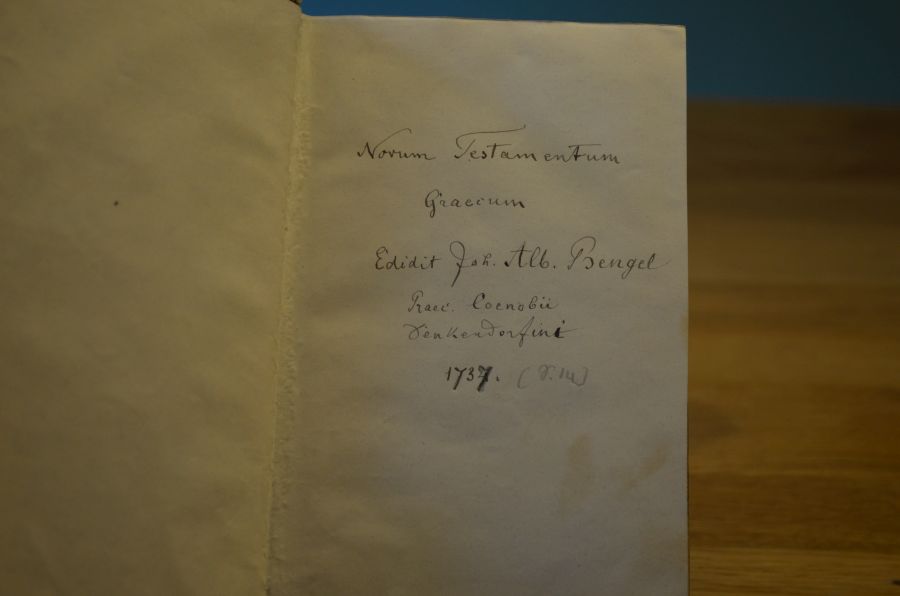 Novum Testamentum
Graecum
Edidit Joh. Alb. Bengel
Praec. Coenobii
Denkendorfini
1737.